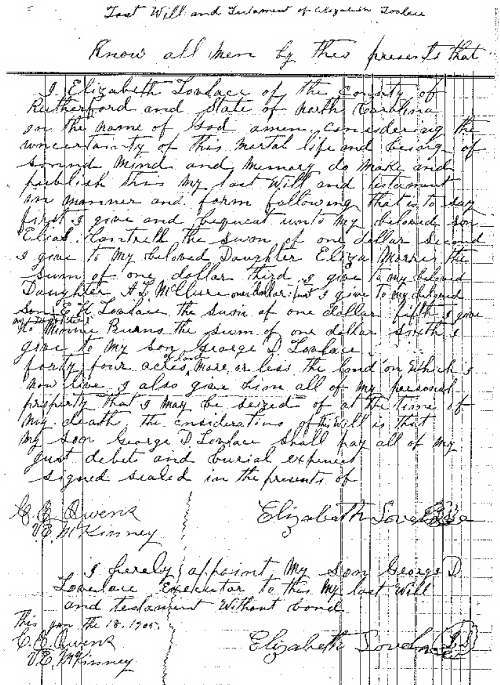 Last Will and Testament of Elizabeth Lovlace
Know all men by these presents that
I Elizabeth Lovlace of the County of
Rutherford and State of North Carolina
in the name of God amen, considering the
uncertainty of this mortal life and being of
sound mind and memory do make and
publish this my last Will and testament
in manner and form following that is to say
first I give and bequeat unto my beloved son
Elias Hantrell the sum of one dollar second
I give to my beloved Daughter Eliza Morris the
sum of one dollar third I give to my beloved
Daughter A L McClure one dollar I give to my beloved
son E H Lovlace the sum of one dollar fifth I give
to Minnie Burns the sum of one dollar sixth I
give to my son George D. Lovlace
forty four acres of land more or less the land on which I
now live I also give him all of my personal
property that I may be seized of at the time of
my death, the consideration of this will is that
my son George D. Lovlace shall pay all of my
just debts and burial expences
signed sealed in the presents of
C. C. Owens
V. E. McKinney
Elizabeth Lovelace
I hereby appoint my son George D.
Lovelace Executor to this my last Will
and testament without bond
This jan the 18. 1905.
C. C. Owens
V. E. McKinney
Elizabeth Lovelace